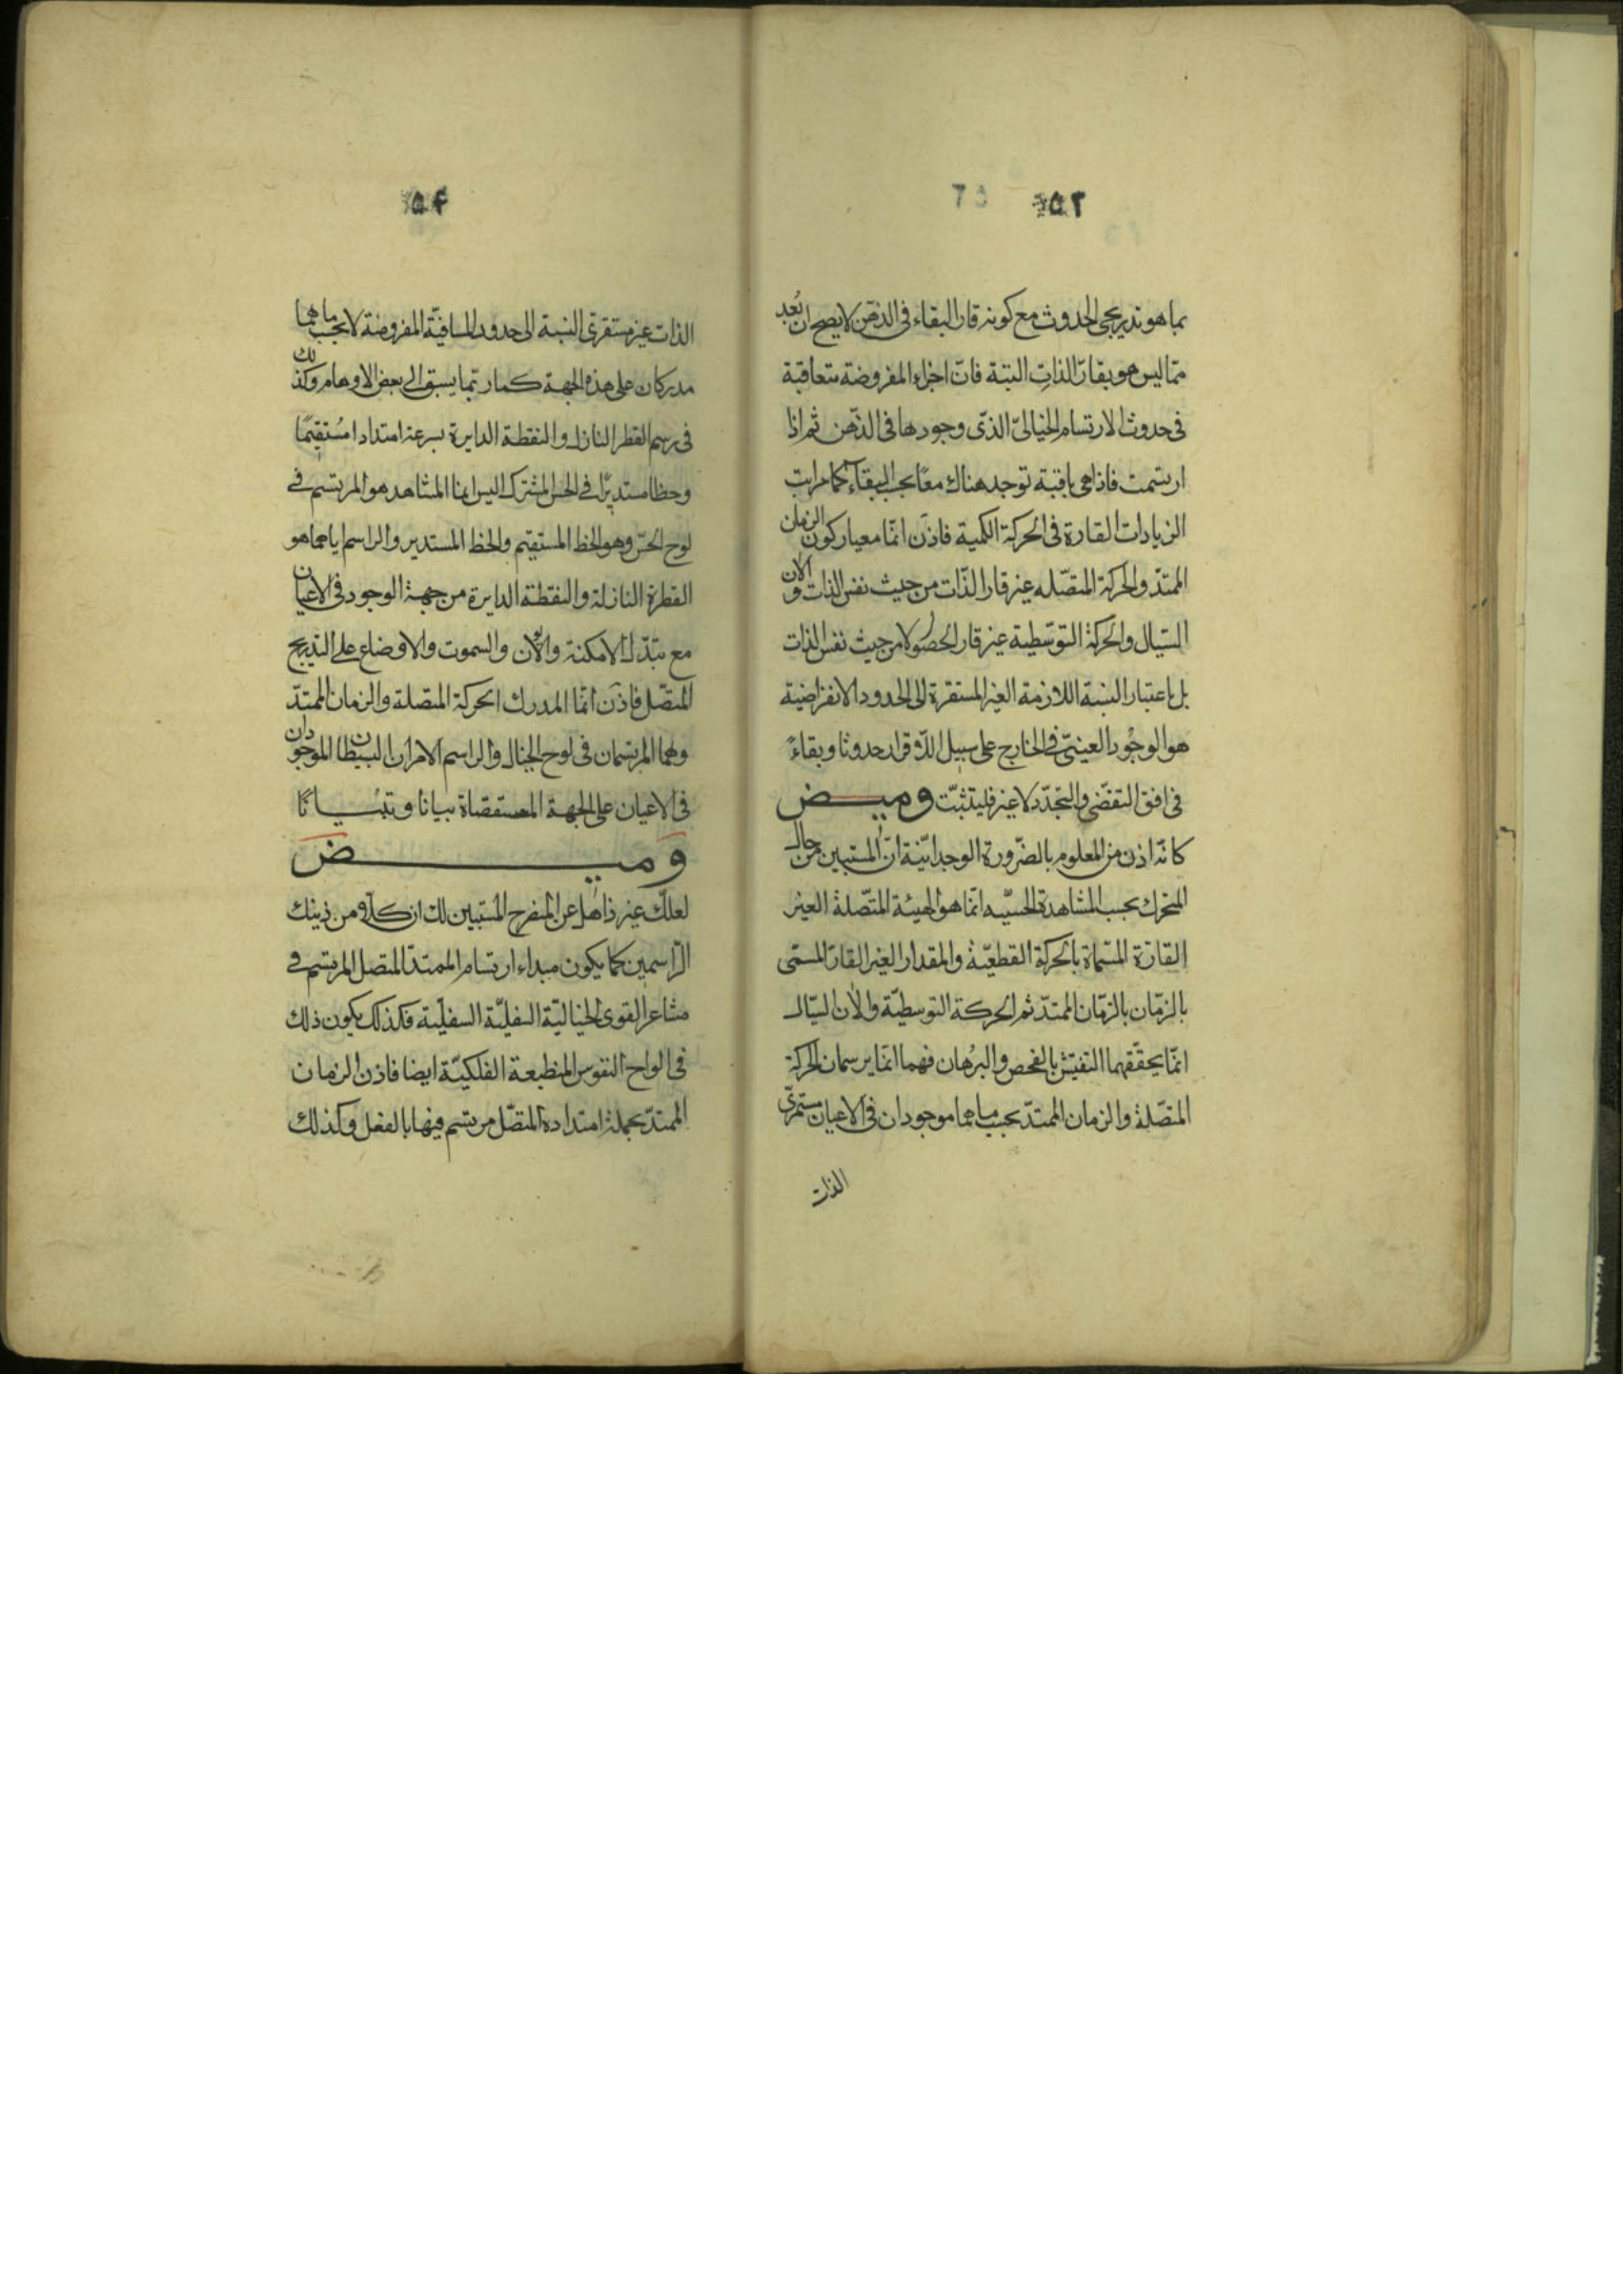 ٥٣
بما هو تدريجى الحدوث مع كونه قار البقاء فى الذهن لا يصح ان يُعد
ممّا ليس هو بقارّ الذات البتة فانّ اجزاءه المفروضة متعاقبة
فى حدوث الارتسام الخيالىّ الذّى وجودها فى الذّهن ثم اذا
ارتسمت فاذا هى باقية توجد هناك معًا بحسب البقاء كما مراتب
الزيادات القارة فى الحركة الكمية فاذن انّما معيار كون الزمان
الممتدّ والحركة المتصّله غير قار الذّات من حيث نفس الذات والان
السّيال والحركة التوسّطية غير قار الحصول لا من حيث نفس الذات
بل باعتبار النسبة اللازمة الغير المستقرة الى الحدود الانفراضية
هو الوجُود العينىّ فى الخارج على سبيل اللّاقرار حدوثا وبقاءً
فى افق التقضّى والتجدّد لا غير فليتثبّت وميض
كانّه اذن من المعلوم بالضّرورة الوجدانيّة انّ المستبين من حال
المتحرك بحسب المشاهدة الحسيّه انّما هو الهيئة المتّصلة الغير
القارّة المسّماة بالحركة القطعيّة والمقدار الغير القارّ المسمّى
بالزمّان بالزمّان الممتدّ ثم الحركة التوسطيّة والان السّيال
انّما يحقّقهما التفتيش بالفحص والبرُهان فهما انّما يرسمان الحركة
المتصّلة والزمان الممتدّ بحسب ما هما موجودان فى الاعيان مستمرّى
الذات
٥٤
الذات غير مستقرتى النسبة الى حدود المسافيّة المفروضة لا بحسب ما هما
مدركان على هذه الجهة كما ربّما يسبق الى بعض الاوهام وكذلك
فى رسم القطر النازل والنقطة الدايرة بسرعة امتدادا مُستقيمًا
وخطا مستديرًا فى الحس المشترك اليس انما المشاهد هو المرتسم فى
لوح الحسّ وهو الخط المستقيم والخط المستدير والراسم اياهما هو
القطرة النازلة والنقطة الدايرة من جهة الوجود فى الاعيان
مع تبدّل الامكنة والان والسموت والاوضاع على التدريج
المتصّل فاذن انمّا المدرك الحركة المتصلة والزمان الممتدّ
وهما المرتسمان فى لوح الخيال والراسم الامران البسيطان الموجودان
فى الاعيان على الجهة المستقصاة بيانا وتبيانًا
وميض
لعلّك غير ذاهل عن المنصرح المستبين لك ان كلاّ من ذينك
الرّاسمين كما يكون مبداء ارتسام الممتدّ المتصل المرتسم فى
مشاعر القوى الخياليّة السفليّة السفليّة فكذلك يكون ذلك
فى الواح النفوس المنطبعة الفلكيّة ايضا فاذن الزمان
الممتدّ بجملة امتداده المتصّل مرتسم فيها بالفعل وكذلك